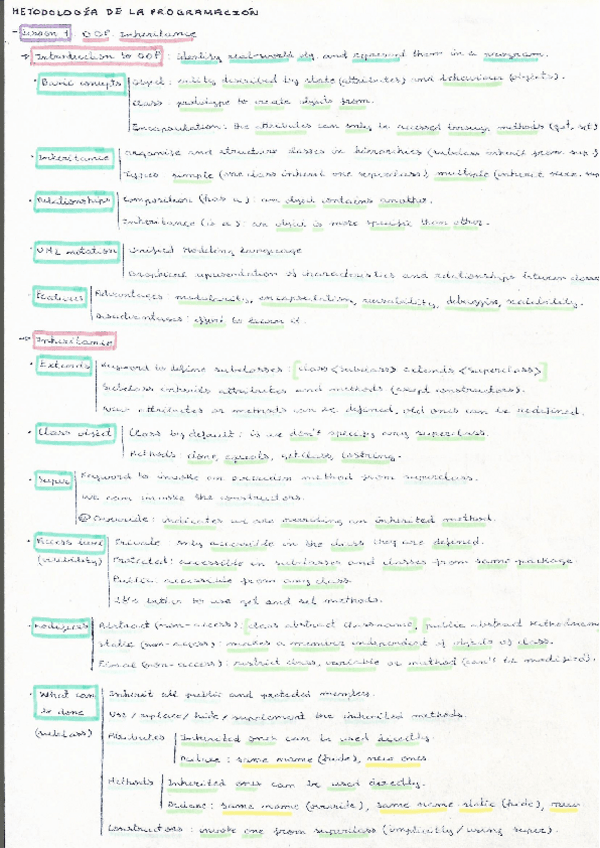 METODOLOGÍA DE LA PROGRAMACIÓN
- Lesson 1 OOP. Inheritance
Introduction to OOP : identify real-world obj. and represent them in a program.
· Basic concepts Object: entity described by state (attributes) and behaviour (objects).
Class: prototype to create objects from.
Encapsulation: the attributes can only be accessed through methods (get, set)
· Inheritance Organise and structure classes in hierarchies (subclass inherit from sup
Types: simple (one class inherit one superclass), multiple (inherit
· Relationships Composition (has a): an object contains another.
Inheritance (is a): an object is more specific than other.
· UML notation Unified Modeling Language
Graphical representation of characteristics and relationships between classes
· Features Advantages: modularity, encapsulation, reusability, debugging, scalability.
Disadvantages: effort to learn it.
Inheritance
· Extends Keyword to define subclasses: [class <subclass> extends <superclass>]
Subclass inherits attributes and methods (except constructors).
New attributes or methods can be defined, old ones can be redefined.
· Class object Class by default: is we don't specify any superclass.
Methods: clone, equals, getClass, toString.
· Super Keyword to invoke an execution method from superclass.
We can invoke the constructors.
@Override: indicates we are overriding an inherited method.
· Access level Private: only accessible in the class they are defined.
(visibility) Protected: accessible in subclasses and classes from same package
Public: accessible from any class.
It's better to use get and set methods.
· Modifiers Abstract (non-access): [class abstract classname] [public abstract methodname
Static (non-access): makes a member independent of objects of class.
Final (non-access): restrict class, variable or method (can't be modified).
· What can Inherit all public and protected members.
be done Use/replace/hide/supplement the inherited methods.
(subclass) Attributes Inherited ones can be used directly.
Declare: same name (hide), new ones
Methods Inherited ones can be used directly.
Declare: same name (override), same name static (hide), new
Constructors: invoke one from superclass (implicitly/using super).